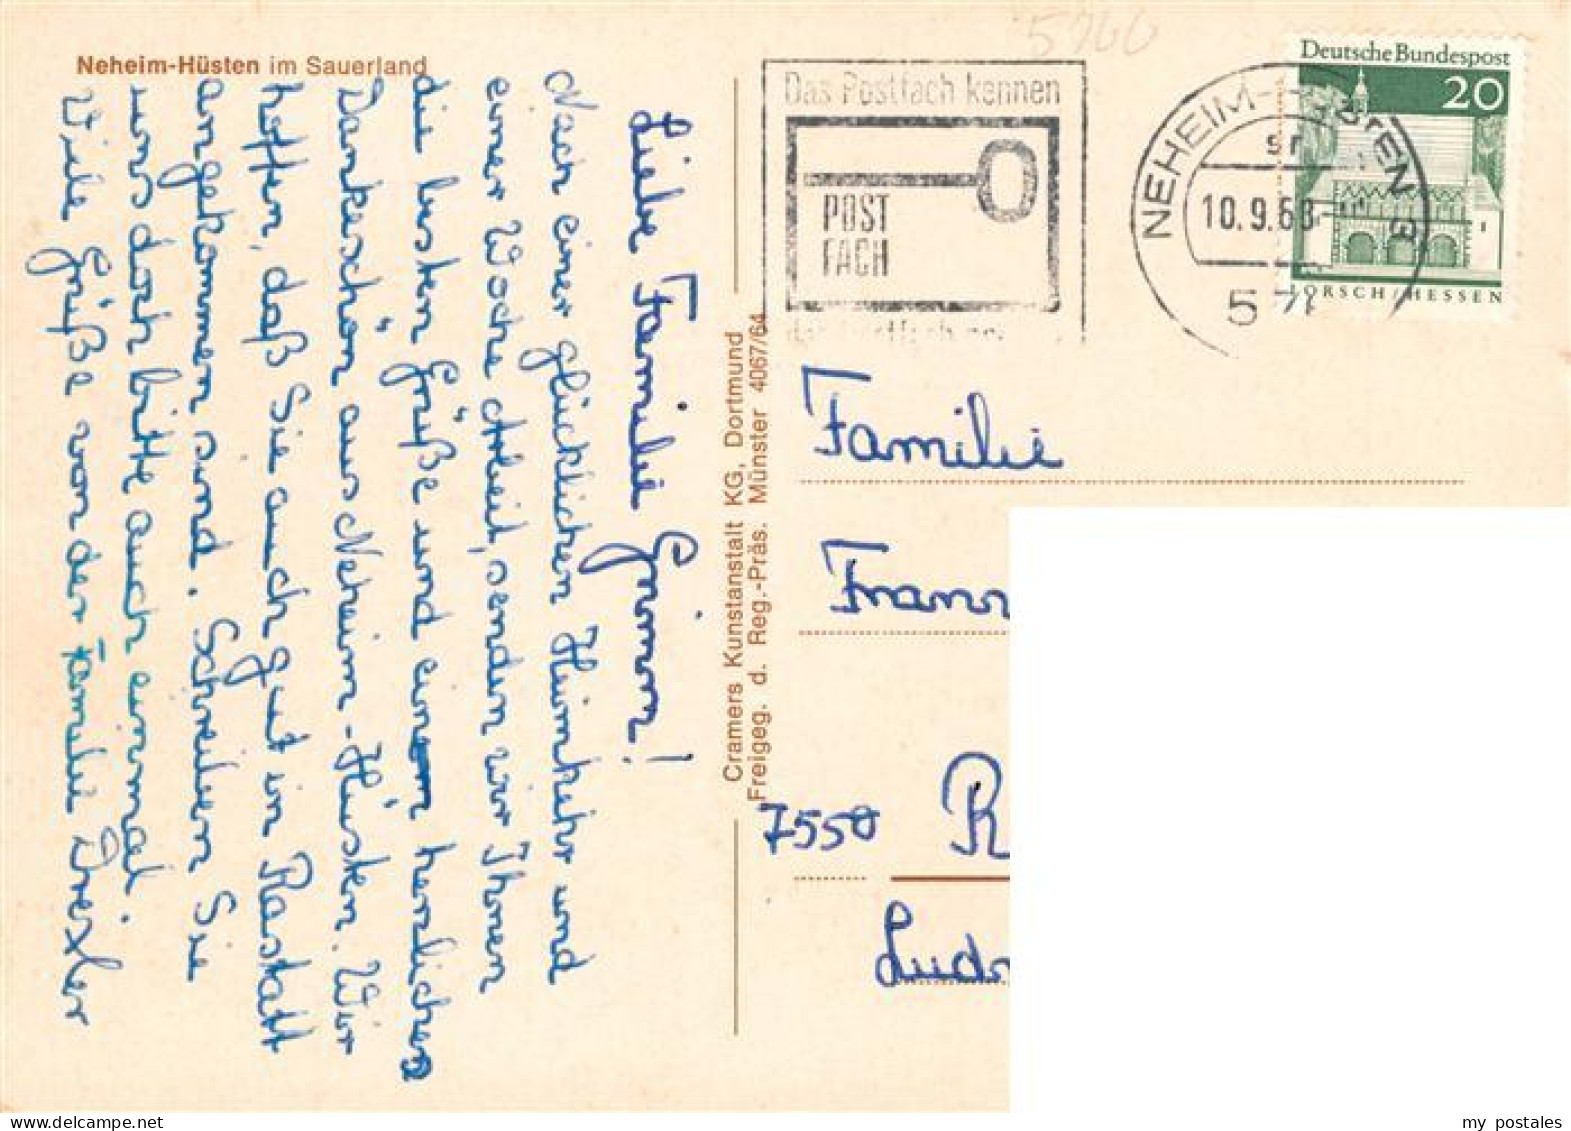 Neheim-Hüsten im Sauerland
Liebe Familie Grimm!
Nach einer glücklichen Heimkehr und
einer Woche Arbeit, senden wir Ihnen
die besten Grüße und einen herzlichen
Dankeschön aus Neheim-Hüsten. Wir
hoffen, daß Sie auch gut in Rastatt
angekommen sind. Schreiben Sie
uns doch bitte auch einmal.
Viele Grüße von der Familie Drexler
Cramers Kunstanstalt KG, Dortmund
Freigeg. d. Reg.-Präs. Münster 4067/64
5760
Das Postfach kennen
POST
FACH
NEHEIM-HÜSTEN 3
10.9.68
57
Deutsche Bundespost
20
LORSCH/HESSEN
Familie
Franz
7550 R
Ludw
my postales